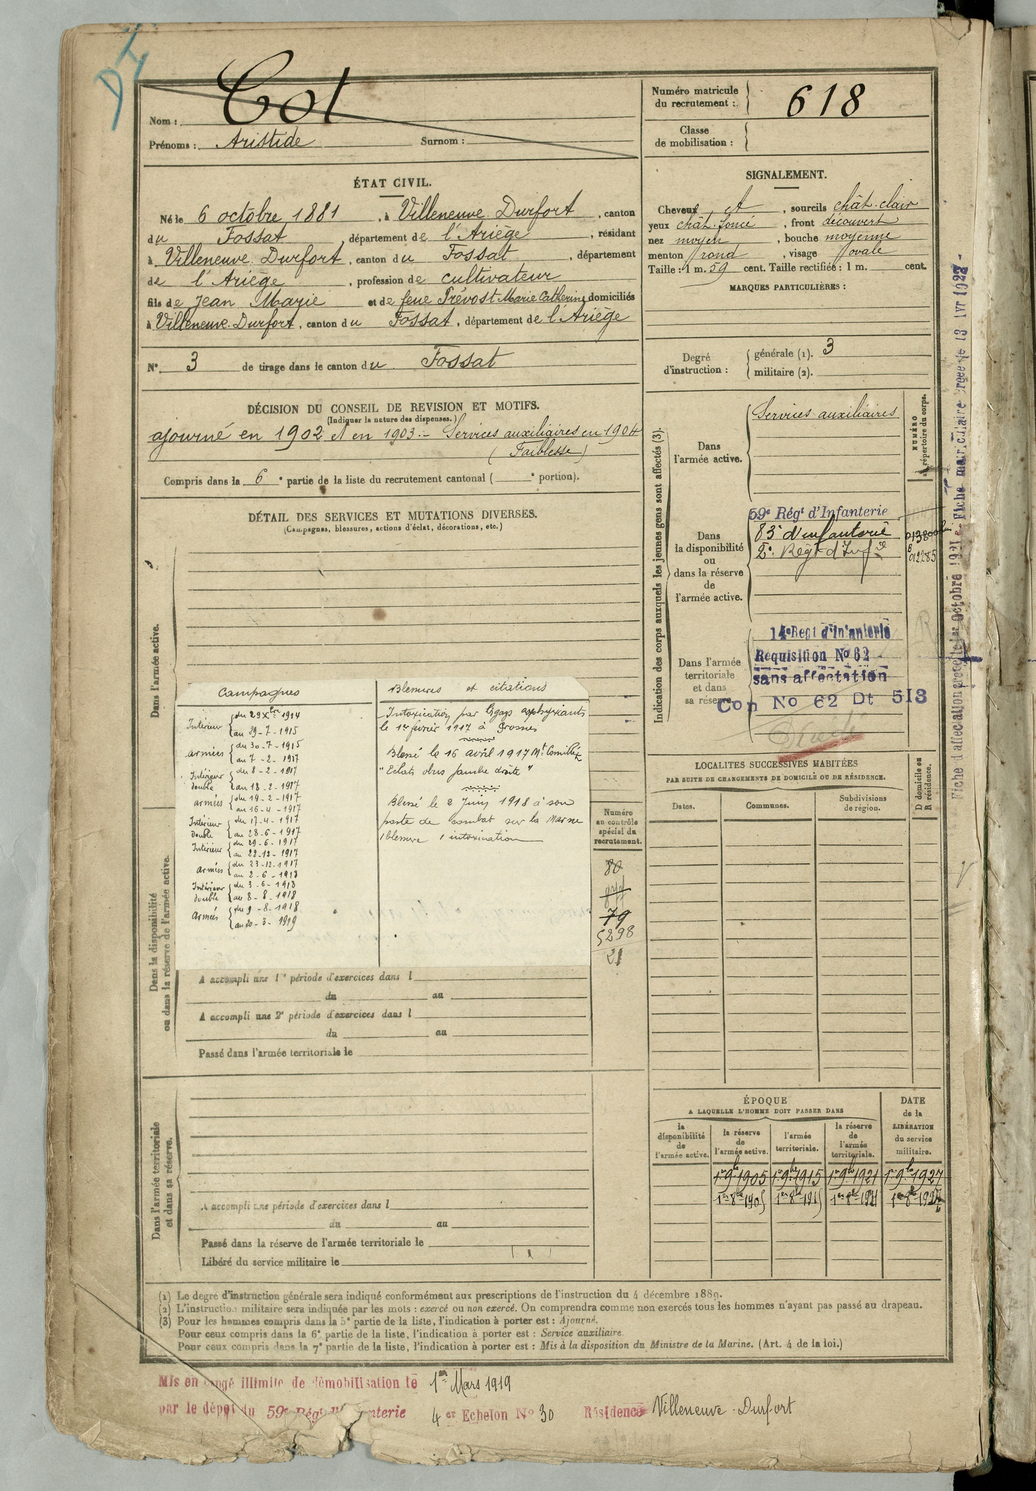 Nom : Cot
Prénoms : Aristide Surnom :
Numéro matricule
du recrutement : 618
Classe
de mobilisation :
ÉTAT CIVIL.
Né le 6 octobre 1881, à Villeneuve Durfort, canton
du Fossat, département de l'Ariège, résidant
à Villeneuve Durfort, canton du Fossat, département
de l'Ariège, profession de cultivateur
fils de Jean Marie et de feue Prévost Marie Catherine domiciliés
à Villeneuve Durfort, canton du Fossat, département de l'Ariège
N° 3 de tirage dans le canton du Fossat
SIGNALEMENT.
Cheveux et, sourcils chât. clair
yeux chât foncé, front découvert
nez moyen, bouche moyenne
menton rond, visage ovale
Taille : 1 m. 59 cent. Taille rectifiée : 1 m. cent.
MARQUES PARTICULIÈRES :
Degré
d'instruction :
générale (1). 3
militaire (2).
DÉCISION DU CONSEIL DE REVISION ET MOTIFS.
(Indiquer la nature des dispenses.)
ajourné en 1902 et en 1903.- Services auxiliaires en 1904
(Faiblesse)
Compris dans la 6e partie de la liste du recrutement cantonal ( e portion).
DÉTAIL DES SERVICES ET MUTATIONS DIVERSES.
(Campagnes, blessures, actions d'éclat, décorations, etc.)
Dans l'armée active.
Dans la disponibilité
ou dans la réserve de l'armée active.
Dans l'armée territoriale
et dans sa réserve.
Campagnes
Intérieur du 29 Xbre 1914
au 29-7-1915
armées du 30-7-1915
au 7-2-1917
Intérieur du 8-2-1917
double au 18-2-1917
armées du 19-2-1917
au 16-4-1917
Intérieur du 17-4-1917
double au 28-6-1917
Intérieur du 29-6-1917
au 22-12-1917
Armées du 23-12-1917
au 2-6-1918
Intérieur du 3-6-1918
double au 8-8-1918
Armées du 9-8-1918
au 20-3-1919
Blessures et citations
Intoxication par Ggaz asphyxiants
le 1er février 1917 à Prosnes
Blessé le 16 avril 1917 Mt Cornillet
"Eclats obus jambe droite"
Blessé le 2 Juin 1918 à son
poste de combat sur la Marne
blessure intoxication
Numéro
au contrôle
spécial du
recrutement.
80
79
5298
21
A accompli une 1re période d'exercices dans l
du au
A accompli une 2e période d'exercices dans l
du au
Passé dans l'armée territoriale le
A accompli une période d'exercices dans l
du au
Passé dans la réserve de l'armée territoriale le
Libéré du service militaire le
Indication des corps auxquels les jeunes gens sont affectés (3).
NUMÉRO
au répertoire du corps.
Dans
l'armée active.
Services auxiliaires
Dans
la disponibilité
ou
dans la réserve
de
l'armée active.
59e Régt d'Infanterie
83e d'infanterie
2e Régt d'Infie
Dans l'armée
territoriale
et dans
sa réserve.
14e Regt d'Infanterie
Requisition No 62
sans affectation
Con No 62 Dt 513
LOCALITES SUCCESSIVES HABITÉES
PAR SUITE DE CHANGEMENTS DE DOMICILE OU DE RÉSIDENCE.
Dates.
Communes.
Subdivisions
de région.
D domicile ou
R résidence.
ÉPOQUE
A LAQUELLE L'HOMME DOIT PASSER DANS
DATE
de la
LIBÉRATION
du service
militaire.
la
disponibilité
de
l'armée active.
la réserve
de
l'armée active.
l'armée
territoriale.
la réserve
de
l'armée
territoriale.
1er 9bre 1905 1er 9bre 1915 1er 9bre 1921 1er 9bre 1927
1er 8bre 1905 1er 8bre 1915 1er 8bre 1921 1er 8bre 1927
(1) Le degré d'instruction générale sera indiqué conformément aux prescriptions de l'instruction du 4 décembre 1889.
(2) L'instruction militaire sera indiquée par les mots : exercé ou non exercé. On comprendra comme non exercés tous les hommes n'ayant pas passé au drapeau.
(3) Pour les hommes compris dans la 5e partie de la liste, l'indication à porter est : Ajourné.
Pour ceux compris dans la 6e partie de la liste, l'indication à porter est : Service auxiliaire.
Pour ceux compris dans la 7e partie de la liste, l'indication à porter est : Mis à la disposition du Ministre de la Marine. (Art. 4 de la loi.)
Mis en congé illimité de démobilisation le 1er Mars 1919
par le dépôt du 59e Régt d'Infanterie 4er Echelon No 30 Résidence Villeneuve-Durfort